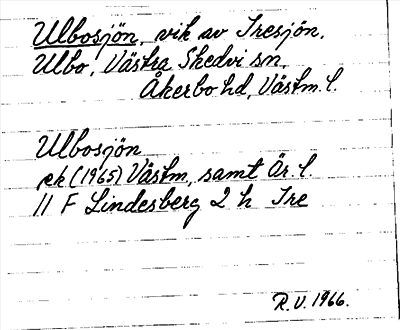 Ulbosjön, vik av Tresjön,
Ulbo, Västra Skedvi sn,
Åkerbo hd, Västm. l.
Ulbosjön
ek (1965) Västm, samt Är. l.
11 F Lindesberg 2 h Tre
R.V. 1966.